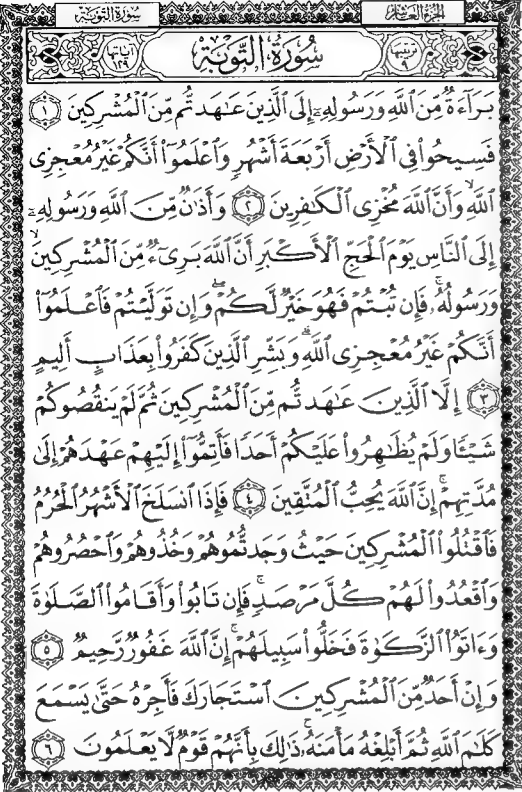 سُورَةُ التَّوْبَةِ الجُزْءُ العَاشِرُ
آيَاتُهَا ١٢٩ سُورَةُ التَّوْبَةِ تَرْتِيبُهَا ٩
بَرَآءَةٌ مِّنَ ٱللَّهِ وَرَسُولِهِۦٓ إِلَى ٱلَّذِينَ عَٰهَدتُّم مِّنَ ٱلْمُشْرِكِينَ ١
فَسِيحُوا۟ فِى ٱلْأَرْضِ أَرْبَعَةَ أَشْهُرٍ وَٱعْلَمُوٓا۟ أَنَّكُمْ غَيْرُ مُعْجِزِى
ٱللَّهِ ۙ وَأَنَّ ٱللَّهَ مُخْزِى ٱلْكَٰفِرِينَ ٢ وَأَذَٰنٌ مِّنَ ٱللَّهِ وَرَسُولِهِۦٓ
إِلَى ٱلنَّاسِ يَوْمَ ٱلْحَجِّ ٱلْأَكْبَرِ أَنَّ ٱللَّهَ بَرِىٓءٌ مِّنَ ٱلْمُشْرِكِينَ ۙ
وَرَسُولُهُۥ ۚ فَإِن تُبْتُمْ فَهُوَ خَيْرٌ لَّكُمْ ۖ وَإِن تَوَلَّيْتُمْ فَٱعْلَمُوٓا۟
أَنَّكُمْ غَيْرُ مُعْجِزِى ٱللَّهِ ۗ وَبَشِّرِ ٱلَّذِينَ كَفَرُوا۟ بِعَذَابٍ أَلِيمٍ
٣ إِلَّا ٱلَّذِينَ عَٰهَدتُّم مِّنَ ٱلْمُشْرِكِينَ ثُمَّ لَمْ يَنقُصُوكُمْ
شَيْـًٔا وَلَمْ يُظَٰهِرُوا۟ عَلَيْكُمْ أَحَدًا فَأَتِمُّوٓا۟ إِلَيْهِمْ عَهْدَهُمْ إِلَىٰ
مُدَّتِهِمْ ۚ إِنَّ ٱللَّهَ يُحِبُّ ٱلْمُتَّقِينَ ٤ فَإِذَا ٱنسَلَخَ ٱلْأَشْهُرُ ٱلْحُرُمُ
فَٱقْتُلُوا۟ ٱلْمُشْرِكِينَ حَيْثُ وَجَدتُّمُوهُمْ وَخُذُوهُمْ وَٱحْصُرُوهُمْ
وَٱقْعُدُوا۟ لَهُمْ كُلَّ مَرْصَدٍ ۚ فَإِن تَابُوا۟ وَأَقَامُوا۟ ٱلصَّلَوٰةَ
وَءَاتَوُا۟ ٱلزَّكَوٰةَ فَخَلُّوا۟ سَبِيلَهُمْ ۚ إِنَّ ٱللَّهَ غَفُورٌ رَّحِيمٌ ٥
وَإِنْ أَحَدٌ مِّنَ ٱلْمُشْرِكِينَ ٱسْتَجَارَكَ فَأَجِرْهُ حَتَّىٰ يَسْمَعَ
كَلَٰمَ ٱللَّهِ ثُمَّ أَبْلِغْهُ مَأْمَنَهُۥ ۚ ذَٰلِكَ بِأَنَّهُمْ قَوْمٌ لَّا يَعْلَمُونَ ٦